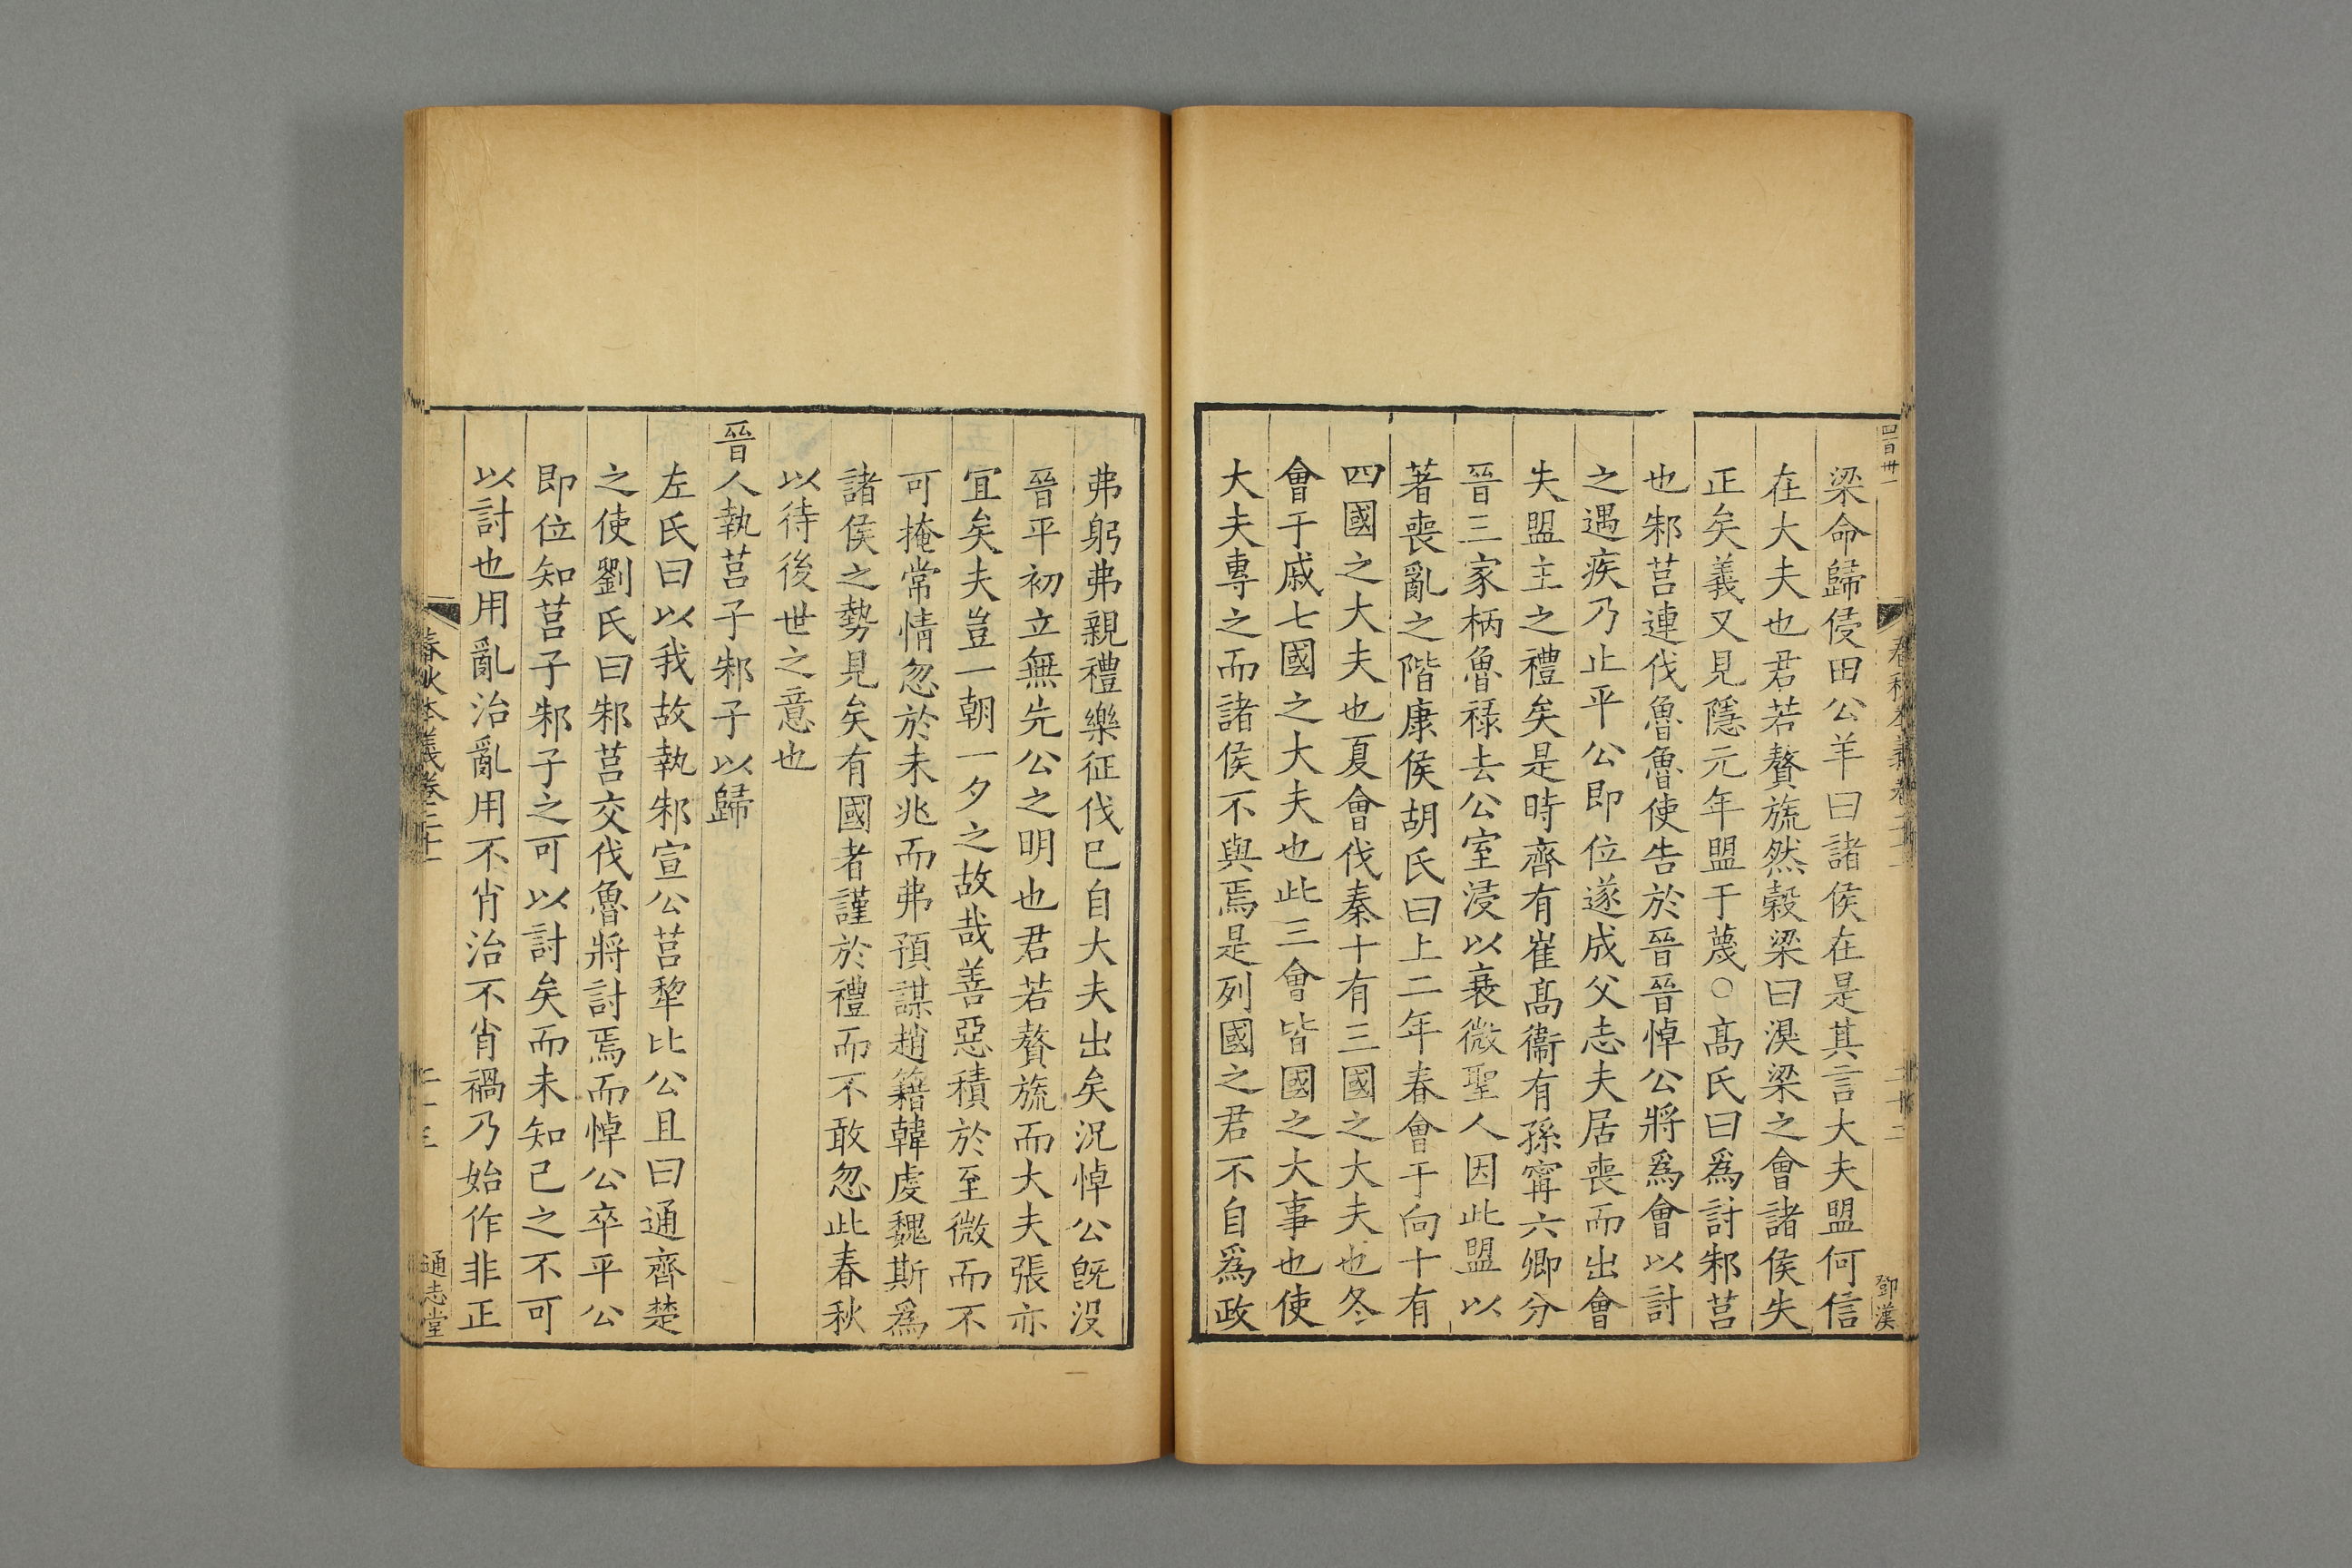 四百卅一
鄧漢
梁命歸侵田公羊曰諸侯在是其言大夫盟何信
在大夫也君若贅旒然穀梁曰湨梁之會諸侯失
正矣義又見隱元年盟于蔑○高氏曰爲討邾莒
也邾莒連伐魯魯使告於晉晉悼公將爲會以討
之遇疾乃止平公即位遂成父志夫居喪而出會
失盟主之禮矣是時齊有崔高衞有孫甯六卿分
晉三家柄魯祿去公室浸以衰微聖人因此盟以
著喪亂之階康侯胡氏曰上二年春會于向十有
四國之大夫也夏會伐秦十有三國之大夫也冬
會于戚七國之大夫也此三會皆國之大事也使
大夫專之而諸侯不與焉是列國之君不自爲政
弗躬弗親禮樂征伐已自大夫出矣況悼公旣沒
晉平初立無先公之明也君若贅旒而大夫張亦
宜矣夫豈一朝一夕之故哉善惡積於至微而不
可掩常情忽於未兆而弗預謀趙籍韓虔魏斯爲
諸侯之勢見矣有國者謹於禮而不敢忽此春秋
以待後世之意也
晉人執莒子邾子以歸
左氏曰以我故執邾宣公莒犂比公且曰通齊楚
之使劉氏曰邾莒交伐魯將討焉而悼公卒平公
即位知莒子邾子之可以討矣而未知已之不可
以討也用亂治亂用不肖治不肖禍乃始作非正
春秋本義卷二十一
通志堂